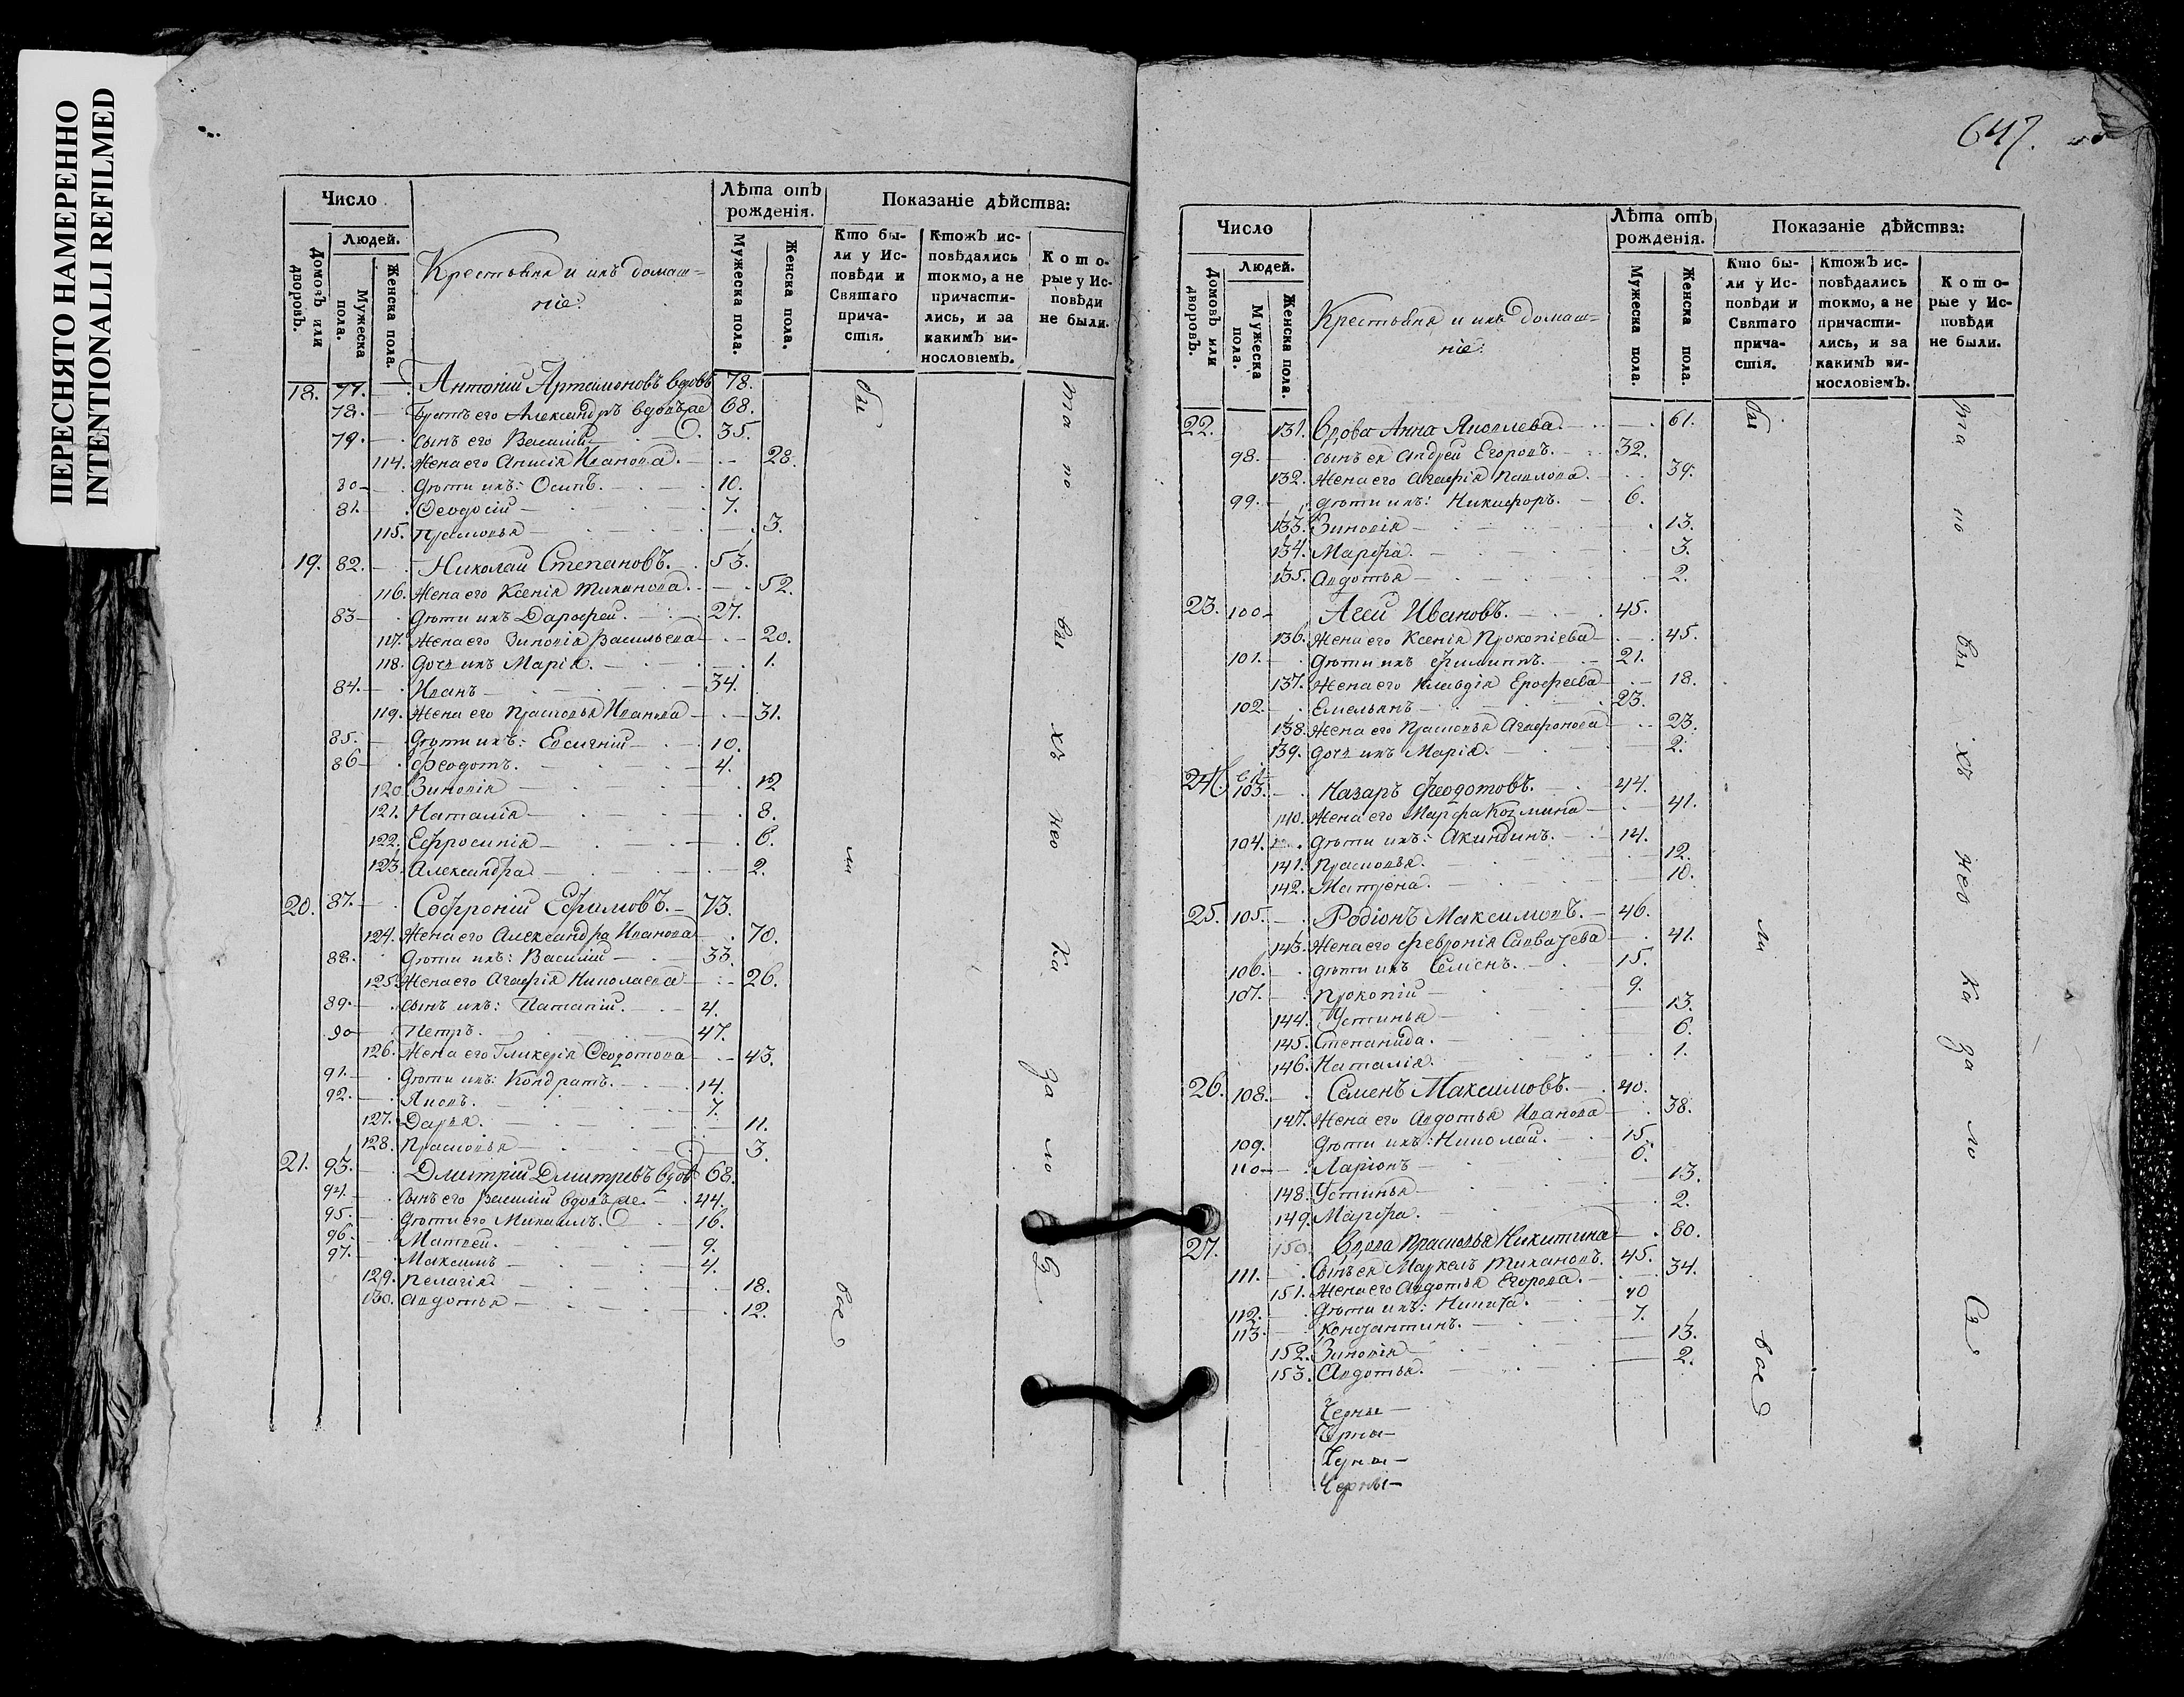 ПЕРЕСНЯТО НАМЕРЕННО
INTENTIONALLI REFILMED
Число
Людей.
Домовъ или дворовъ.
Мужеска пола.
Женска пола.
Крестьяня и ихъ домаш=
ніе:
Лѣта отъ рожденія.
Мужеска пола.
Женска пола.
Показаніе дѣйства:
Кто бы-
ли у Ис-
повѣди и
Святаго
прича-
стія.
Ктожъ ис-
повѣдались
токмо, а не
причасти-
лись, и за
какимъ ви-
нословіемъ.
Кото-
рые у Ис-
повѣди
не были.
18. 77. Антоній Артамоновъ вдовъ 78.
78. Братъ его Александръ вдовъ же 68.
79. Сынъ его Василій 35.
114. Жена его Анисія Иванова. 28.
80 Дѣти ихъ: Осипъ. 10.
81. Ѳеодосій 7.
115. Прасковья 3.
19. 82. Николай Степановъ. 53.
116. Жена его Ксенія Тиханова. 52.
83 Дѣти ихъ Дарофей. 27.
117. Жена его Зиновія Васильева 20.
118. Дочь ихъ Марія. 1.
84. Иванъ 34.
119. Жена его Прасковья Иванова 31.
85. Дѣти ихъ: Евсигній 10.
86 Феодотъ. 4.
120. Зиновія 12
121. Наталія 8.
122. Ефросинія 6.
123. Александра 2.
20. 87. Софроній Ефимовъ. 73.
124. Жена его Александра Иванова 70.
88. Дѣти ихъ: Василій 33.
125. Жена его Агафія Николаева 26.
89. Сынъ ихъ: Патапій. 4.
90 Петръ. 47.
126. Жена его Гликерія Ѳеодотова 43.
91. Дѣти ихъ: Кондратъ. 14.
92. Яковъ. 7.
127. Дарья. 11.
128. Прасковья 3.
21. 93. Дмитрій Дмитревъ вдов 68.
94. Сынъ его Василій вдовъ же. 44.
95. Дѣти его Михаилъ. 16.
96. Матвей. 9.
97. Максимъ 4.
129. Пелагія 18.
130. Авдотья 12.
бы
ли
все
та
ко
вы
хъ
не
ка
за
ло
сь
647.
Число
Людей.
Домовъ или дворовъ.
Мужеска пола.
Женска пола.
Крестьяня и ихъ домаш=
ніе:
Лѣта отъ рожденія.
Мужеска пола.
Женска пола.
Показаніе дѣйства:
Кто бы-
ли у Ис-
повѣди и
Святаго
прича-
стія.
Ктожъ ис-
повѣдались
токмо, а не
причасти-
лись, и за
какимъ ви-
нословіемъ.
Кото-
рые у Ис-
повѣди
не были.
22. 131. Вдова Анна Яковлева. 61.
98. Сынъ ея Андрей Егоровъ. 32.
132. Жена его Агафія Павлова. 39.
99. Дѣти ихъ: Никифоръ. 6.
133. Зиновія 13.
134. Марфа. 3.
135. Авдотья 2.
23. 100 Агей Ивановъ. 45.
136. Жена его Ксенія Прокопіева 45.
101. Дѣти ихъ Филиппъ. 21.
137. Жена его Клавдія Ерофеева 18.
102. Емельянъ 23.
138. Жена его Прасковья Агафонова 23.
139. Дочь ихъ Марія. 2.
24. 103. Назаръ Феодотовъ. 44.
140. Жена его Марфа Козмина 41.
104. Дѣти ихъ: Акиндинъ. 14.
141. Прасковья. 12.
142. Матрена. 10.
25. 105. Родіонъ Максимовъ. 46.
143. Жена его Февронія Савватева 41.
106. Дѣти ихъ Семенъ. 15.
107. Прокопій 9.
144. Устинья 13.
145. Степанида. 6.
146. Наталія. 1.
26. 108. Семенъ Максимовъ. 40.
147. Жена его Авдотья Иванова 38.
109. Дѣти ихъ: Николай. 15.
110 Ларіонъ 6.
148. Устинья 13.
149. Марфа. 2.
27. 150. Вдова Прасковья Никитина 80.
111. Сынъ ея Маркелъ Тихановъ. 45.
151. Жена его Авдотья Егорова. 34.
112. Дѣти ихъ: Никита. 10
113. Константинъ. 7.
152. Зиновія 13.
153. Авдотья. 2.
бы
ли
все
та
ко
вы
хъ
не
ка
за
ло
сь